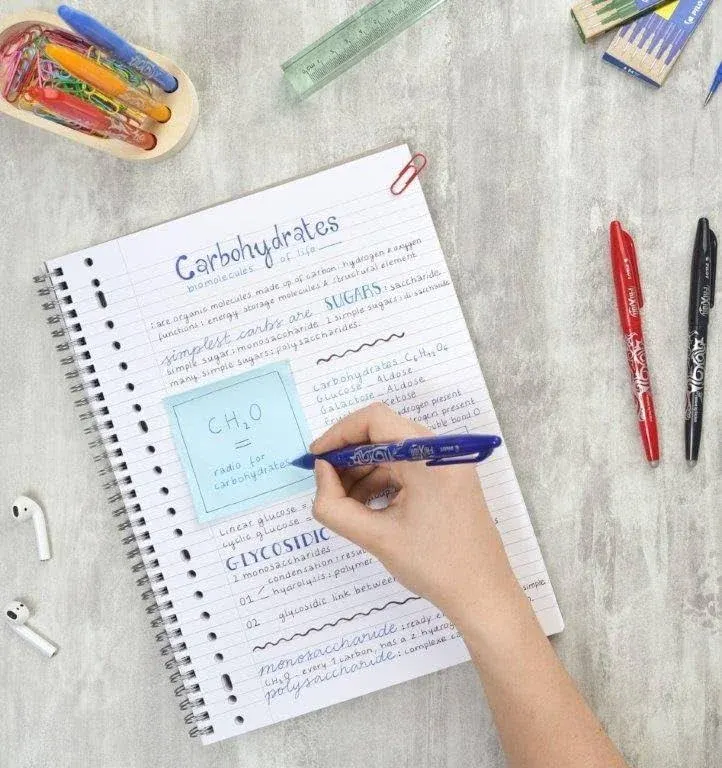 Carbohydrates
biomolecules of life
: are organic molecules made up of carbon, hydrogen & oxygen
functions: energy storage molecules & structural element
simplest carbs are SUGARS: saccharide
simple sugar: monosaccharide, 2 simple sugars: di saccharide
many simple sugars: polysaccharides.
carbohydrates C6H12O6
Glucose - Aldose
Galactose - Aldose
Ketose
hydrogen present
present
double bond O
CH2O
=
radio for
carbohydrates
Linear glucose =
cyclic glucose =
GLYCOSIDIC
2 monosaccharides
condensation: resu
01 hydrolysis: polymer
02 glycosidic link between
simple
monosaccharide: ready e
CH2O - every 1 carbon, has a 2 hydrog
polysaccharide: complexe ca
FRIXION
PILOT